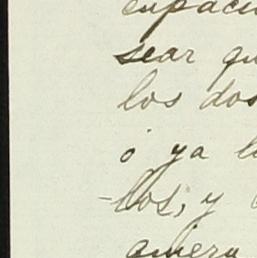 sear qu
los dos
ó ya l
-los; y
quiera